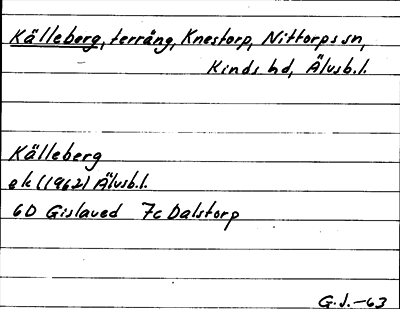 Källeberg, terräng, Knestorp, Nittorps sn,
Kinds hd, Älvsb.l.
Källeberg
ek (1962) Älvsb.l.
6D Gislaved 7c Dalstorp
G.J.-63